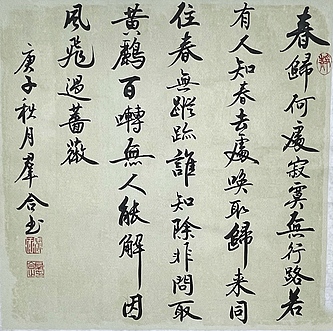 春歸何處寂寞無行路若
有人知春去處喚取歸來同
住春無蹤跡誰知除非問取
黃鸝百囀無人能解因
風飛過薔薇
庚子秋月羣合书